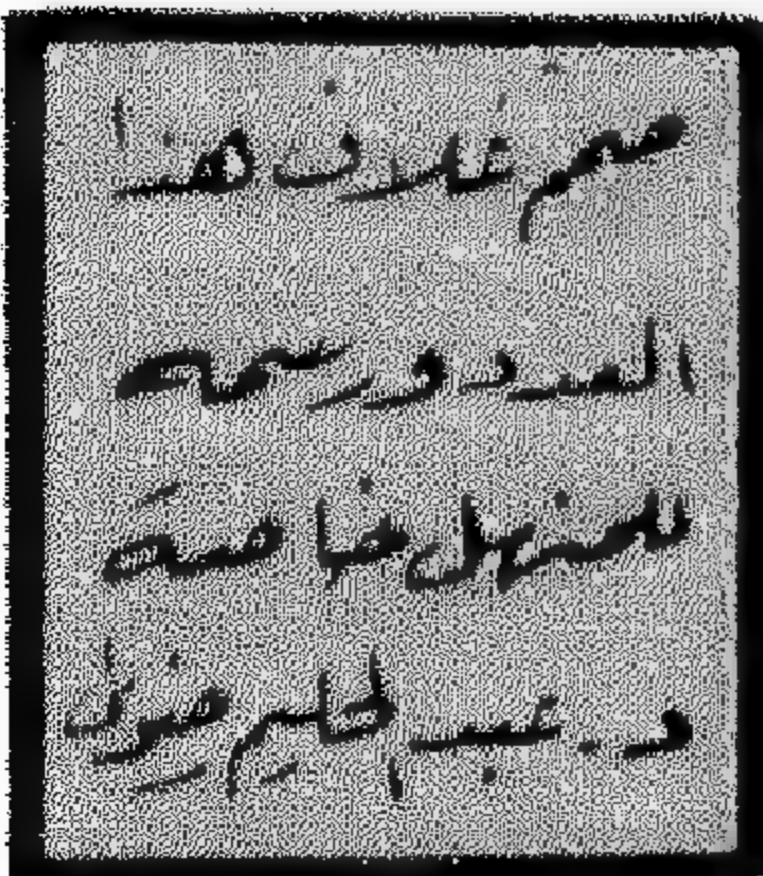 صمم غلاف هذا
العدد ورسمه
للمنهل خاصة
د. عبد الحليم رضوي